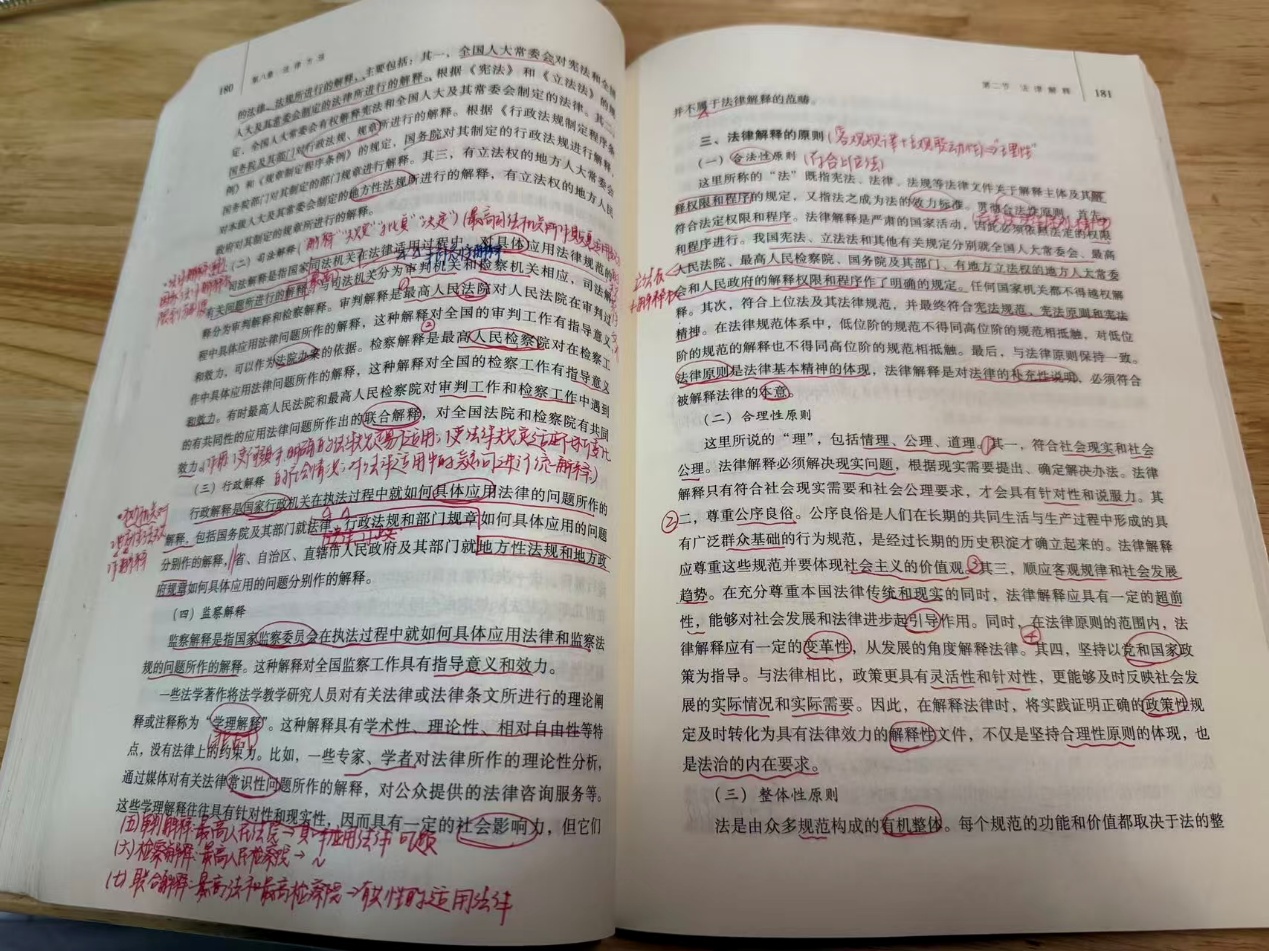 180 第八章 法律方法
的法律、法规所进行的解释，主要包括：其一，全国人大常委会对宪法和全国
人大及其常委会制定的法律所进行的解释。根据《宪法》和《立法法》的规
定，全国人大常委会有权解释宪法和全国人大及其常委会制定的法律。其二，
国务院及其部门对行政法规、规章所进行的解释。根据《行政法规制定程序条
例》和《规章制定程序条例》的规定，国务院对其制定的行政法规进行解释，
国务院部门对其制定的部门规章进行解释。其三，有立法权的地方人大常委会
对本级人大及其常委会制定的地方性法规所进行的解释，有立法权的地方人民
政府对其制定的规章所进行的解释。
（二）司法解释
司法解释是指国家司法机关在法律适用过程中，对具体应用法律规范的
有关问题所进行的解释。与司法机关分为审判机关和检察机关相应，司法解
释分为审判解释和检察解释。审判解释是最高人民法院对人民法院在审判过
程中具体应用法律问题所作的解释，这种解释对全国的审判工作有指导意义
和效力，可以作为法院办案的依据。检察解释是最高人民检察院对在检察工
作中具体应用法律问题所作的解释，这种解释对全国的检察工作有指导意义
和效力。有时最高人民法院和最高人民检察院对审判工作和检察工作中遇到
的有共同性的应用法律问题所作出的联合解释，对全国法院和检察院有共同
效力。
（三）行政解释
行政解释是国家行政机关在执法过程中就如何具体应用法律的问题所作的
解释，包括国务院及其部门就法律、行政法规和部门规章如何具体应用的问题
分别作的解释，省、自治区、直辖市人民政府及其部门就地方性法规和地方政
府规章如何具体应用的问题分别作的解释。
（四）监察解释
监察解释是指国家监察委员会在执法过程中就如何具体应用法律和监察法
规的问题所作的解释。这种解释对全国监察工作具有指导意义和效力。
一些法学著作将法学教学研究人员对有关法律或法律条文所进行的理论阐
释或注释称为“学理解释”。这种解释具有学术性、理论性、相对自由性等特
点，没有法律上的约束力。比如，一些专家、学者对法律所作的理论性分析，
通过媒体对有关法律常识性问题所作的解释，对公众提供的法律咨询服务等。
这些学理解释往往具有针对性和现实性，因而具有一定的社会影响力，但它们
(五)审判解释：最高人民法院→具体应用法律问题
(六)检察解释：最高人民检察院→
(七)联合解释：最高法和最高检察院→有共性的运用法律
第二节 法律解释 181
并不属于法律解释的范畴。
三、法律解释的原则(客观规律+主观能动性→“合理性”
（一）合法性原则(符合上位法)
这里所称的“法”既指宪法、法律、法规等法律文件关于解释主体及其解
释权限和程序的规定，又指法之成为法的效力标准。贯彻合法性原则，首先
符合法定权限和程序。法律解释是严肃的国家活动，因此必须依照法定的权限
和程序进行。我国宪法、立法法和其他有关规定分别就全国人大常委会、最高
人民法院、最高人民检察院、国务院及其部门、有地方立法权的地方人大常委
会和人民政府的解释权限和程序作了明确的规定。任何国家机关都不得越权解
释。其次，符合上位法及其法律规范，并最终符合宪法规范、宪法原则和宪法
精神。在法律规范体系中，低位阶的规范不得同高位阶的规范相抵触，对低位
阶的规范的解释也不得同高位阶的规范相抵触。最后，与法律原则保持一致。
法律原则是法律基本精神的体现，法律解释是对法律的补充性说明，必须符合
被解释法律的本意。
（二）合理性原则
这里所说的“理”，包括情理、公理、道理。其一，符合社会现实和社会
公理。法律解释必须解决现实问题，根据现实需要提出、确定解决办法。法律
解释只有符合社会现实需要和社会公理要求，才会具有针对性和说服力。其
②二，尊重公序良俗。公序良俗是人们在长期的共同生活与生产过程中形成的具
有广泛群众基础的行为规范，是经过长期的历史积淀才确立起来的。法律解释
应尊重这些规范并要体现社会主义的价值观。③其三，顺应客观规律和社会发展
趋势。在充分尊重本国法律传统和现实的同时，法律解释应具有一定的超前
性，能够对社会发展和法律进步起引导作用。同时，在法律原则的范围内，法
律解释应有一定的变革性，从发展的角度解释法律。④其四，坚持以党和国家政
策为指导。与法律相比，政策更具有灵活性和针对性，更能够及时反映社会发
展的实际情况和实际需要。因此，在解释法律时，将实践证明正确的政策性规
定及时转化为具有法律效力的解释性文件，不仅是坚持合理性原则的体现，也
是法治的内在要求。
（三）整体性原则
法是由众多规范构成的有机整体。每个规范的功能和价值都取决于法的整